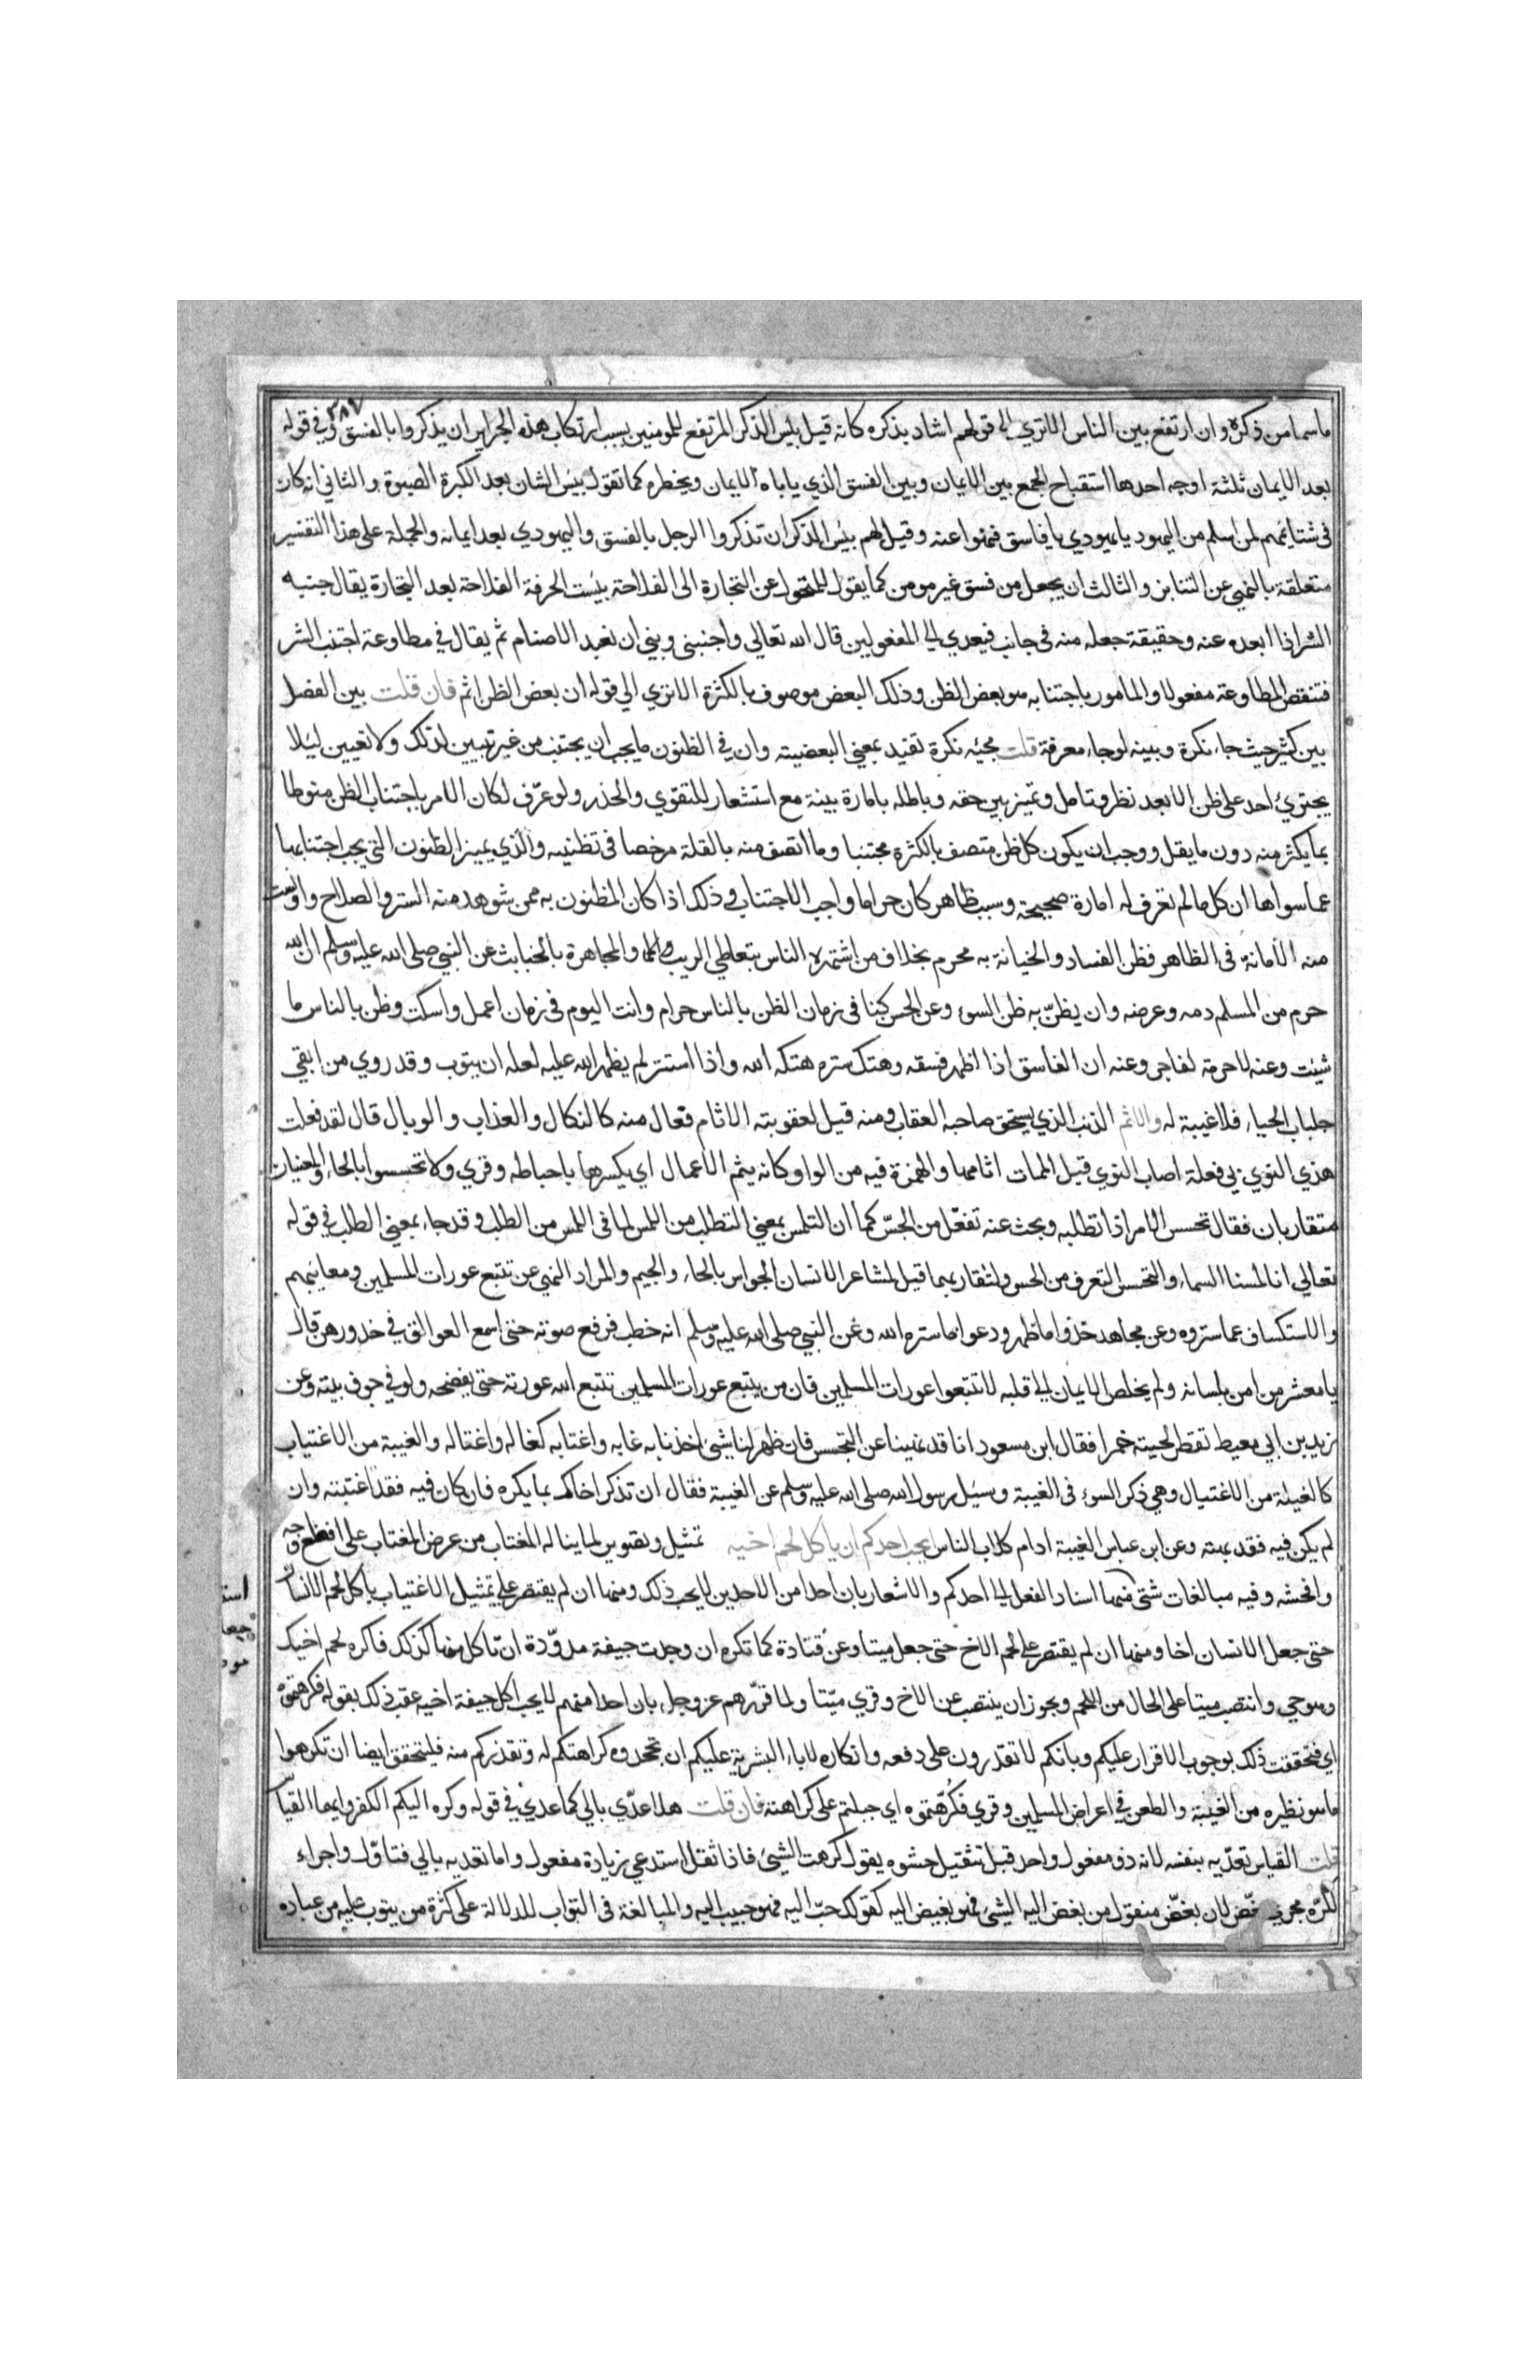 ما سما من ذكره وارتفع بين الناس الا تري الي قولهم اشاد بذكره كانه قيل بئس الذكر المرتفع للمومنين بسبب ارتكاب هذه الجراير ان يذكروا بالفسق وفي قوله
بعد الايمان ثلثة اوجه احدها استقباح الجمع بين الايمان وبين الفسق الذي ياباه الايمان ويحظره كما تقول بئس الشان بعد الكبرة الصبوة والثاني انه كان
في شتايمهم لمن اسلم من اليهود يا يهودي يا فاسق فنهوا عنه وقيل لهم بئس الذكر ان تذكروا الرجل بالفسق واليهودي بعد ايمانه والجملة علي هذا التفسير
متعلقة بالنهي عن التنابز والثالث ان يجعل من فسق غير مومن كما يقول للمتحول عن التجارة الى الفلاحة بئست الحرفة الفلاحة بعد التجارة يقال جنبه
الشر اذا ابعده عنه وحقيقة جعله منه في جانب فيعدي الي المفعولين قال الله تعالي واجنبني وبني ان نعبد الاصنام ثم يقال في مطاوعة اجتنب الشر
فتنقص المطاوعة مفعولا والمامور باجتنابه هو بعض الظن وذلك البعض موصوف بالكثرة الا تري الي قوله ان بعض الظن اثم فان قلت بين الفصل
بين كثير حيث جاء نكرة وبينه لو جاء معرفة قلت مجيئه نكرة تفيد بمعني البعضية وان في الظنون ما يجب ان يجتنب من غير تبيين لذلك ولا تعيين ليلا
يجتري احد علي ظن الا بعد نظر وتامل وتميز بين حقه وباطله بامارة بينة مع استشعار للتقوي والحذر ولو عرّف لكان الامر باجتناب الظن منوطا
بما يكثر منه دون ما يقل ووجب ان يكون كل ظن متصف بالكثرة مجتنبا وما اتصف منه بالقلة مرخصا في تظنيه والذي يميز الظنون التي يجب اجتنابها
عما سواها ان كل ما لم تعرف له امارة صحيحة وسبب ظاهر كان حراما واجب الاجتناب وذلك اذا كان المظنون به ممن شوهد منه الستر والصلاح واونست
منه الامانة في الظاهر فظن الفساد والخيانة به محرم بخلاف من اشتهره الناس بتعاطي الريب والمجاهرة بالخبايث عن النبي صلى الله عليه وسلم ان الله
حرم من المسلم دمه وعرضه وان يظنّ به ظن السوء وعن الحسن كنا في زمان الظن بالناس حرام وانت اليوم في زمان اعمل واسكت وظن بالناس ما
شيئت وعنه لا حرمة لفاجر وعنه ان الفاسق اذا اظهر فسقه وهتك ستره هتكه الله واذا استتر لم يظهر الله عليه لعله ان يتوب وقد روي من القي
جلباب الحياء فلا غيبة له والاثم الذنب الذي يستحق صاحبه العقاب ومنه قيل لعقوبته الاثام فعال منه كالنكال والعذاب والوبال قال لقد فعلت
هذي النوي بي فعلة اصاب النوي قبل الممات اثامها والهمزة فيه من الواو كانه يثم الاعمال اي يكسرها باحباطه وقري ولا تحسسوا بالحاء والمعنيان
متقاربان فقال تجسس الامر اذا تطلبه وبحث عنه تفعّل من الجسّ كما ان التلمس بمعني التطلب من اللمس لما في اللمس من الطلب وقد جاء بمعني الطلب في قوله
تعالي انا لمسنا السماء والتحسس التعرف من الحس ولتقاربهما قيل لمشاعر الانسان الحواس بالحاء والجيم والمراد النهي عن تتبع عورات المسلمين ومعائبهم
والاستكساف عما ستروه وعن مجاهد خذوا ما ظهر ودعوا ما ستره الله وعن النبي صلى الله عليه وسلم انه خطب فرفع صوته حتى اسمع العواتق في خدورهن قال
يا معشر من امن بلسانه ولم يخلص الايمان الي قلبه لا تتبعوا عورات المسلمين فان من يتبع عورات المسلمين تتبع الله عورته حتى يفضحه ولو في جوف بيته وعن
زيد بن ابي معيط تقطر لحيته خمرا فقال ابن مسعود انا قد نهينا عن التجسس فان ظهر لنا شئ اخذنا به غابه واغتابه كغاله واغتاله والغيبة من الاغتياب
كالغيلة من الاغتيال وهي ذكر السوء في الغيبة وسئل رسول الله صلى الله عليه وسلم عن الغيبة فقال ان تذكر اخاك بما يكره فان كان فيه فقد اغتبته وان
لم يكن فيه فقد بهته وعن ابن عباس الغيبة ادام كلاب الناس ايحب احدكم ان ياكل لحم اخيه تمثيل وتصوير لما يناله المغتاب من عرض المغتاب على افظع وجه
وافحشه وفيه مبالغات شتى منها اسناد الفعل الي احدكم والاشعار بان احدا من الاحدين لا يحب ذلك ومنها ان لم يقتصر علي تمثيل الاغتياب باكل لحم الانسان
حتى جعل الانسان اخا ومنها ان لم يقتصر علي لحم الاخ حتى جعل ميتا وعن قتادة كما تكره ان وجدت جيفة مدوّدة ان تاكل منها كذلك فاكره لحم اخيك
وهو حي وانتصب ميتا على الحال من اللحم ويجوز ان ينتصب عن الاخ وقري ميّتا ولما قرّرهم عز وجل بان احدا منهم لا يحب اكل جيفة اخيه عقب ذلك بقوله فكرهتموه
اي فتحققت ذلك بوجوب الاقرار عليكم وبانكم لا تقدرون على دفعه وانكاره لاباء البشرية عليكم ان تجحدوه كراهتكم له وتقذركم منه فليتحقق ايضا ان تكرهوا
ما هو نظيره من الغيبة والطعن في اعراض المسلمين وقري فكُرّهتموه اي جبلتم على كراهته فان قلت هلا عدّي بالي كما عدي في قوله وكره اليكم الكفر وايهما القياس
قلت القياس تعدّيه بنفسه لانه ذو مفعول واحد قبل تثقيل حشوه يقول كرهت الشئ فاذا ثقل استدعي زيادة مفعول واما تعديه بالي فتاوّل واجراء
لكرّه مجري بغّض لان بغّض منقول من بغض اليه الشئ فهو بغيض اليه كقولك حبّ اليه فهو حبيب اليه والمبالغة في التواب للدلالة على كثرة من يتوب عليه من عباده